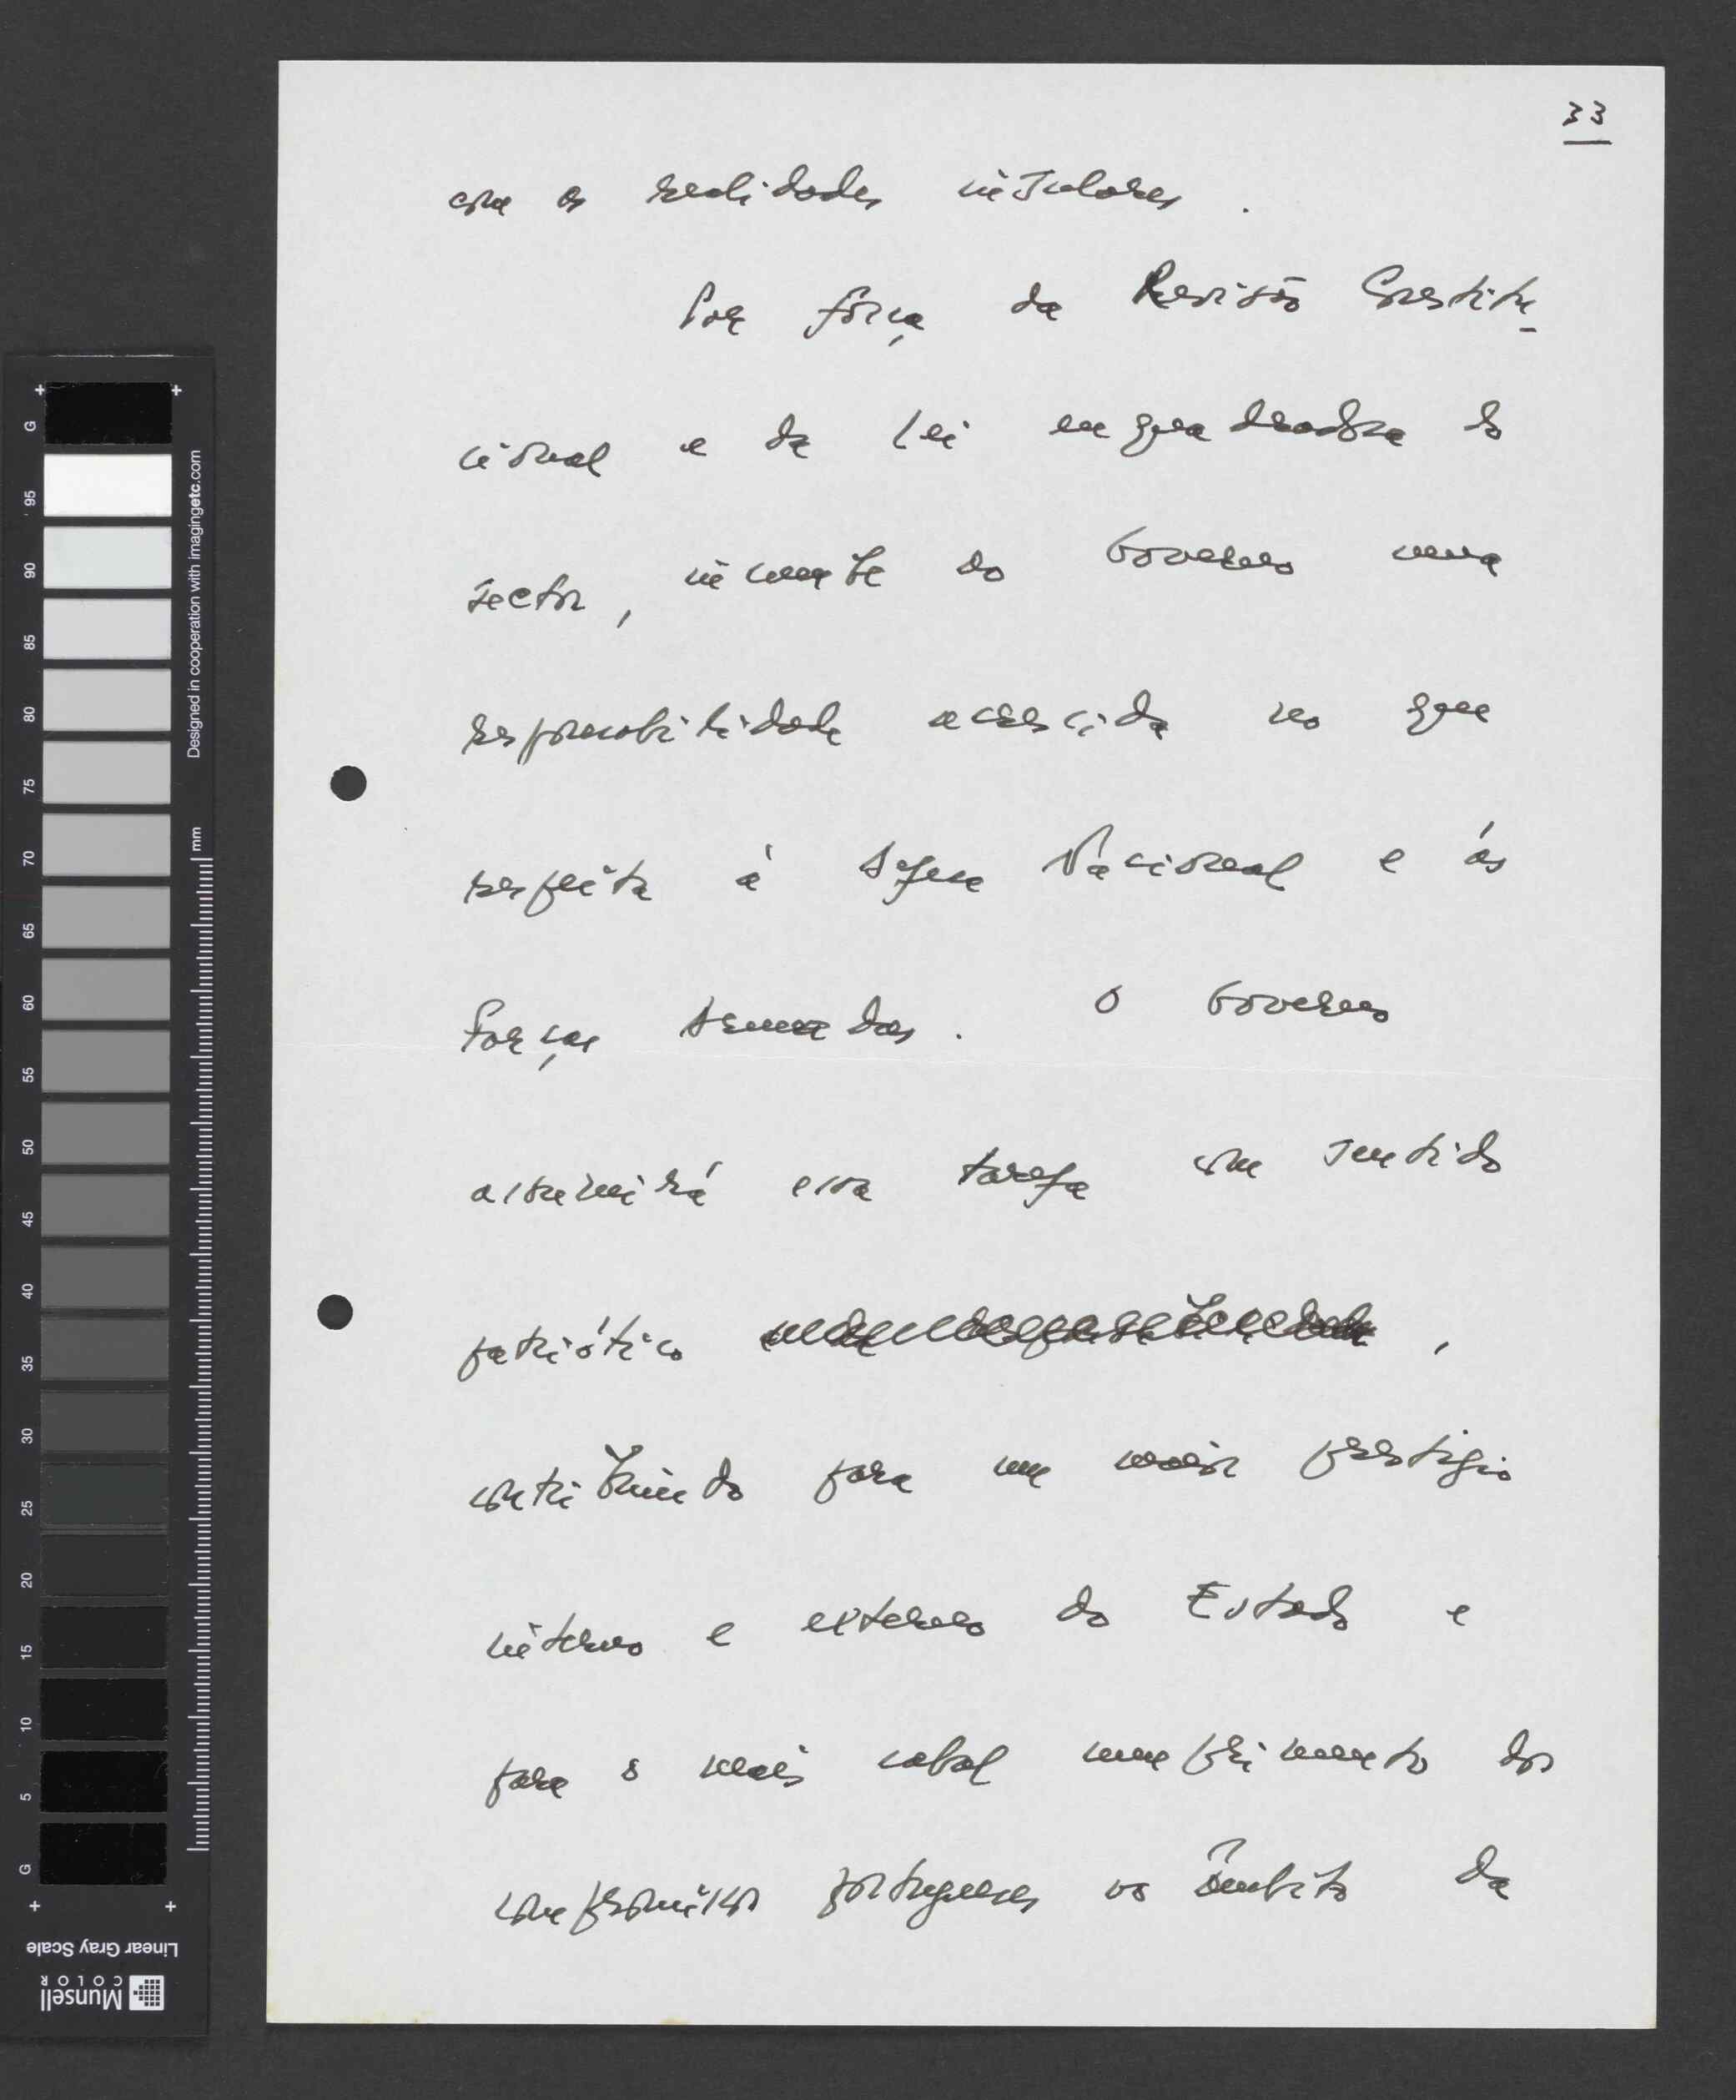 33
com as realidades insulares.
Por força da Revisão Constitu-
cional e da Lei enquadradora do
sector, incumbe ao Governo uma
responsabilidade acrescida no que
respeita à Defesa Nacional e às
Forças Armadas. O Governo
assumirá essa tarefa com sentido
patriótico ,
contribuindo para um maior prestígio
interno e externo do Estado e
para o mais cabal cumprimento dos
compromissos portugueses no âmbito da
G 95 90 85 80 75 70 65 60 55 50 45 40 35 30 25 20 15 10 5 G
Designed in cooperation with imagingetc.com
mm
Linear Gray Scale
Munsell
COLOR